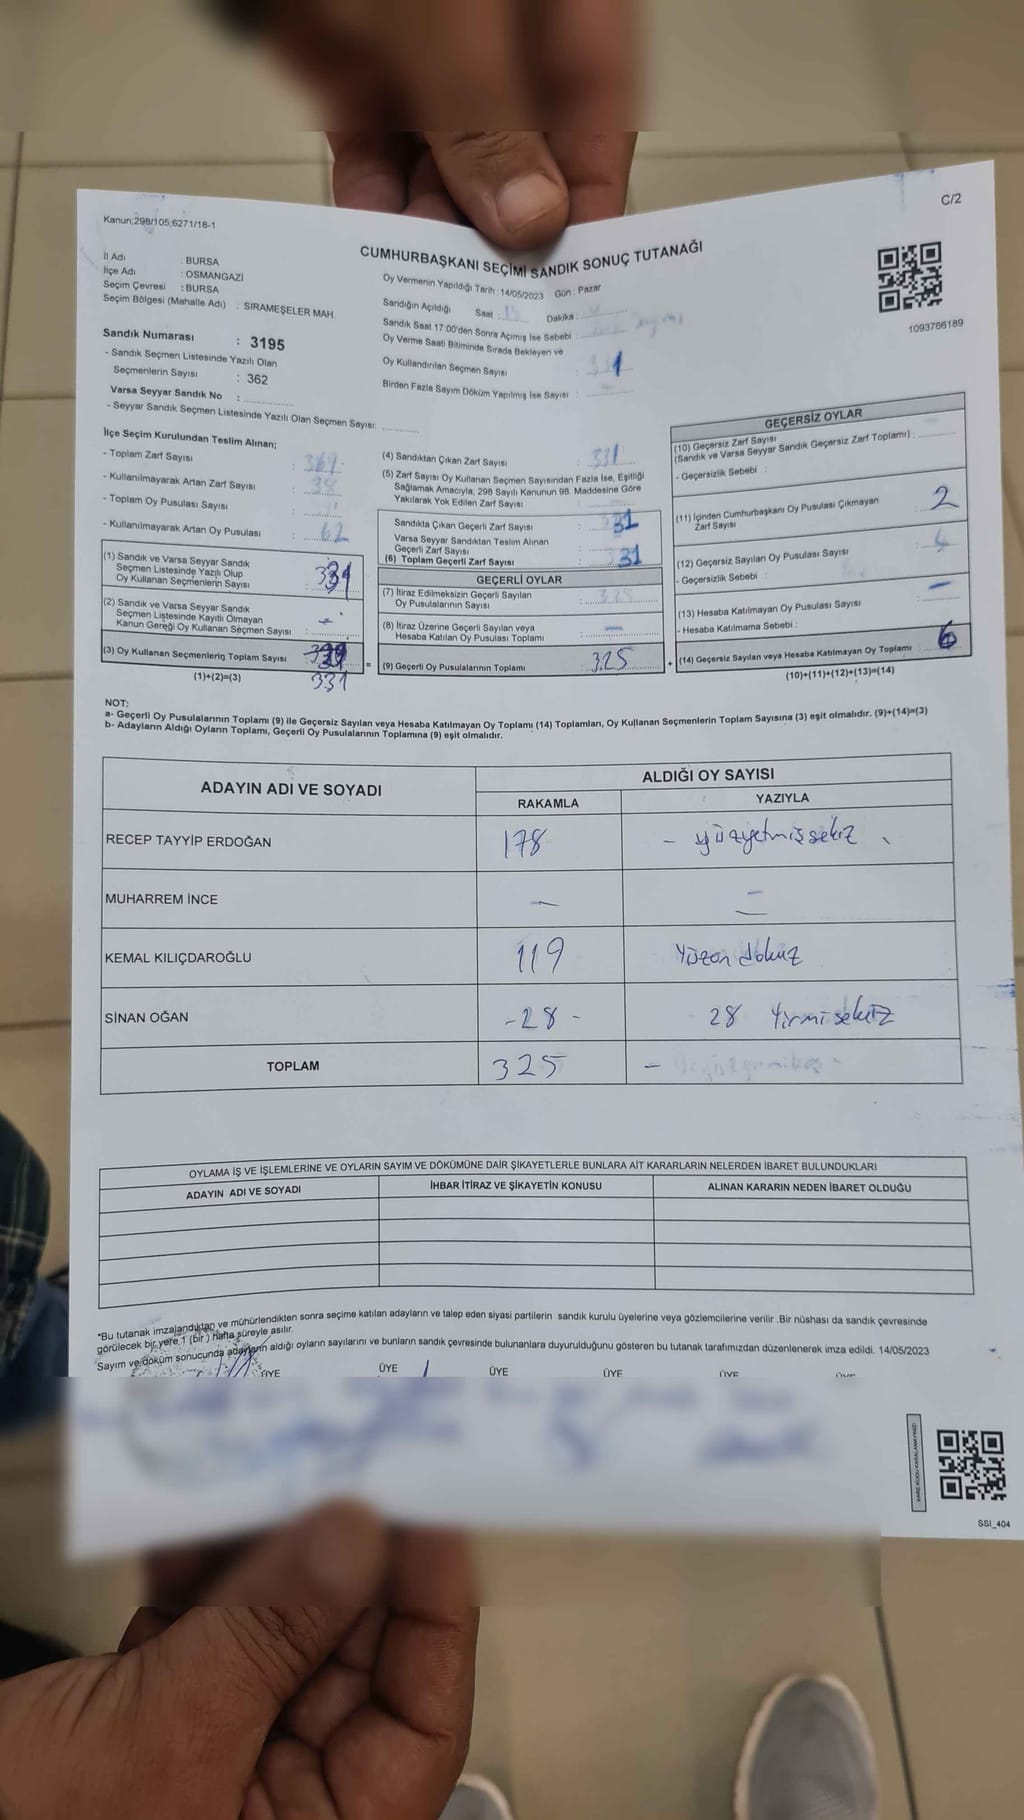 Kanun;298/105;6271/18-1
C/2
CUMHURBAŞKANI SEÇİMİ SANDIK SONUÇ TUTANAĞI
İl Adı : BURSA
İlçe Adı : OSMANGAZİ
Seçim Çevresi : BURSA
Seçim Bölgesi (Mahalle Adı) : SIRAMEŞELER MAH.
Sandık Numarası : 3195
- Sandık Seçmen Listesinde Yazılı Olan
Seçmenlerin Sayısı : 362
Varsa Seyyar Sandık No :
- Seyyar Sandık Seçmen Listesinde Yazılı Olan Seçmen Sayısı:
Oy Vermenin Yapıldığı Tarih : 14/05/2023 Gün : Pazar
Sandığın Açıldığı Saat : Dakika :
Sandık Saat 17:00'den Sonra Açımış İse Sebebi :
Oy Verme Saati Bitiminde Sırada Bekleyen ve
Oy Kullandırılan Seçmen Sayısı :
Birden Fazla Sayım Döküm Yapılmış İse Sayısı :
1093766189
İlçe Seçim Kurulundan Teslim Alınan;
- Toplam Zarf Sayısı :
- Kullanılmayarak Artan Zarf Sayısı : 38
- Toplam Oy Pusulası Sayısı :
- Kullanılmayarak Artan Oy Pusulası : 62
(1) Sandık ve Varsa Seyyar Sandık
Seçmen Listesinde Yazılı Olup
Oy Kullanan Seçmenlerin Sayısı : 331
(2) Sandık ve Varsa Seyyar Sandık
Seçmen Listesinde Kayıtlı Olmayan
Kanun Gereği Oy Kullanan Seçmen Sayısı : -
(3) Oy Kullanan Seçmenlerin Toplam Sayısı :
331
(1)+(2)=(3)
(4) Sandıktan Çıkan Zarf Sayısı : 331
(5) Zarf Sayısı Oy Kullanan Seçmen Sayısından Fazla İse, Eşitliği
Sağlamak Amacıyla; 298 Sayılı Kanunun 98. Maddesine Göre
Yakılarak Yok Edilen Zarf Sayısı :
Sandıkta Çıkan Geçerli Zarf Sayısı : 331
Varsa Seyyar Sandıktan Teslim Alınan
Geçerli Zarf Sayısı :
(6) Toplam Geçerli Zarf Sayısı : 331
GEÇERLİ OYLAR
(7) İtiraz Edilmeksizin Geçerli Sayılan
Oy Pusulalarının Sayısı : 325
(8) İtiraz Üzerine Geçerli Sayılan veya
Hesaba Katılan Oy Pusulası Toplamı : -
= (9) Geçerli Oy Pusulalarının Toplamı : 325
GEÇERSİZ OYLAR
(10) Geçersiz Zarf Sayısı
(Sandık ve Varsa Seyyar Sandık Geçersiz Zarf Toplamı) :
- Geçersizlik Sebebi :
(11) İçinden Cumhurbaşkanı Oy Pusulası Çıkmayan
Zarf Sayısı 2
(12) Geçersiz Sayılan Oy Pusulası Sayısı : 4
- Geçersizlik Sebebi :
(13) Hesaba Katılmayan Oy Pusulası Sayısı : -
- Hesaba Katılmama Sebebi :
+ (14) Geçersiz Sayılan veya Hesaba Katılmayan Oy Toplamı : 6
(10)+(11)+(12)+(13)=(14)
NOT:
a- Geçerli Oy Pusulalarının Toplamı (9) ile Geçersiz Sayılan veya Hesaba Katılmayan Oy Toplamı (14) Toplamları, Oy Kullanan Seçmenlerin Toplam Sayısına (3) eşit olmalıdır. (9)+(14)=(3)
b- Adayların Aldığı Oyların Toplamı, Geçerli Oy Pusulalarının Toplamına (9) eşit olmalıdır.
ADAYIN ADI VE SOYADI ALDIĞI OY SAYISI
RAKAMLA YAZIYLA
RECEP TAYYİP ERDOĞAN 178 - yüzyetmişsekiz
MUHARREM İNCE - =
KEMAL KILIÇDAROĞLU 119 Yüzon dokuz
SİNAN OĞAN -28- 28 Yirmisekiz
TOPLAM 325 -
OYLAMA İŞ VE İŞLEMLERİNE VE OYLARIN SAYIM VE DÖKÜMÜNE DAİR ŞİKAYETLERLE BUNLARA AİT KARARLARIN NELERDEN İBARET BULUNDUKLARI
ADAYIN ADI VE SOYADI İHBAR İTİRAZ VE ŞİKAYETİN KONUSU ALINAN KARARIN NEDEN İBARET OLDUĞU
*Bu tutanak imzalandıktan ve mühürlendikten sonra seçime katılan adayların ve talep eden siyasi partilerin sandık kurulu üyelerine veya gözlemcilerine verilir .Bir nüshası da sandık çevresinde
görülecek bir yere 1 (bir ) hafta süreyle asılır.
Sayım ve döküm sonucunda adayların aldığı oyların sayılarını ve bunların sandık çevresinde bulunanlara duyurulduğunu gösteren bu tutanak tarafımızdan düzenlenerek imza edildi. 14/05/2023
ÜYE ÜYE ÜYE ÜYE ÜYE
SSI_404